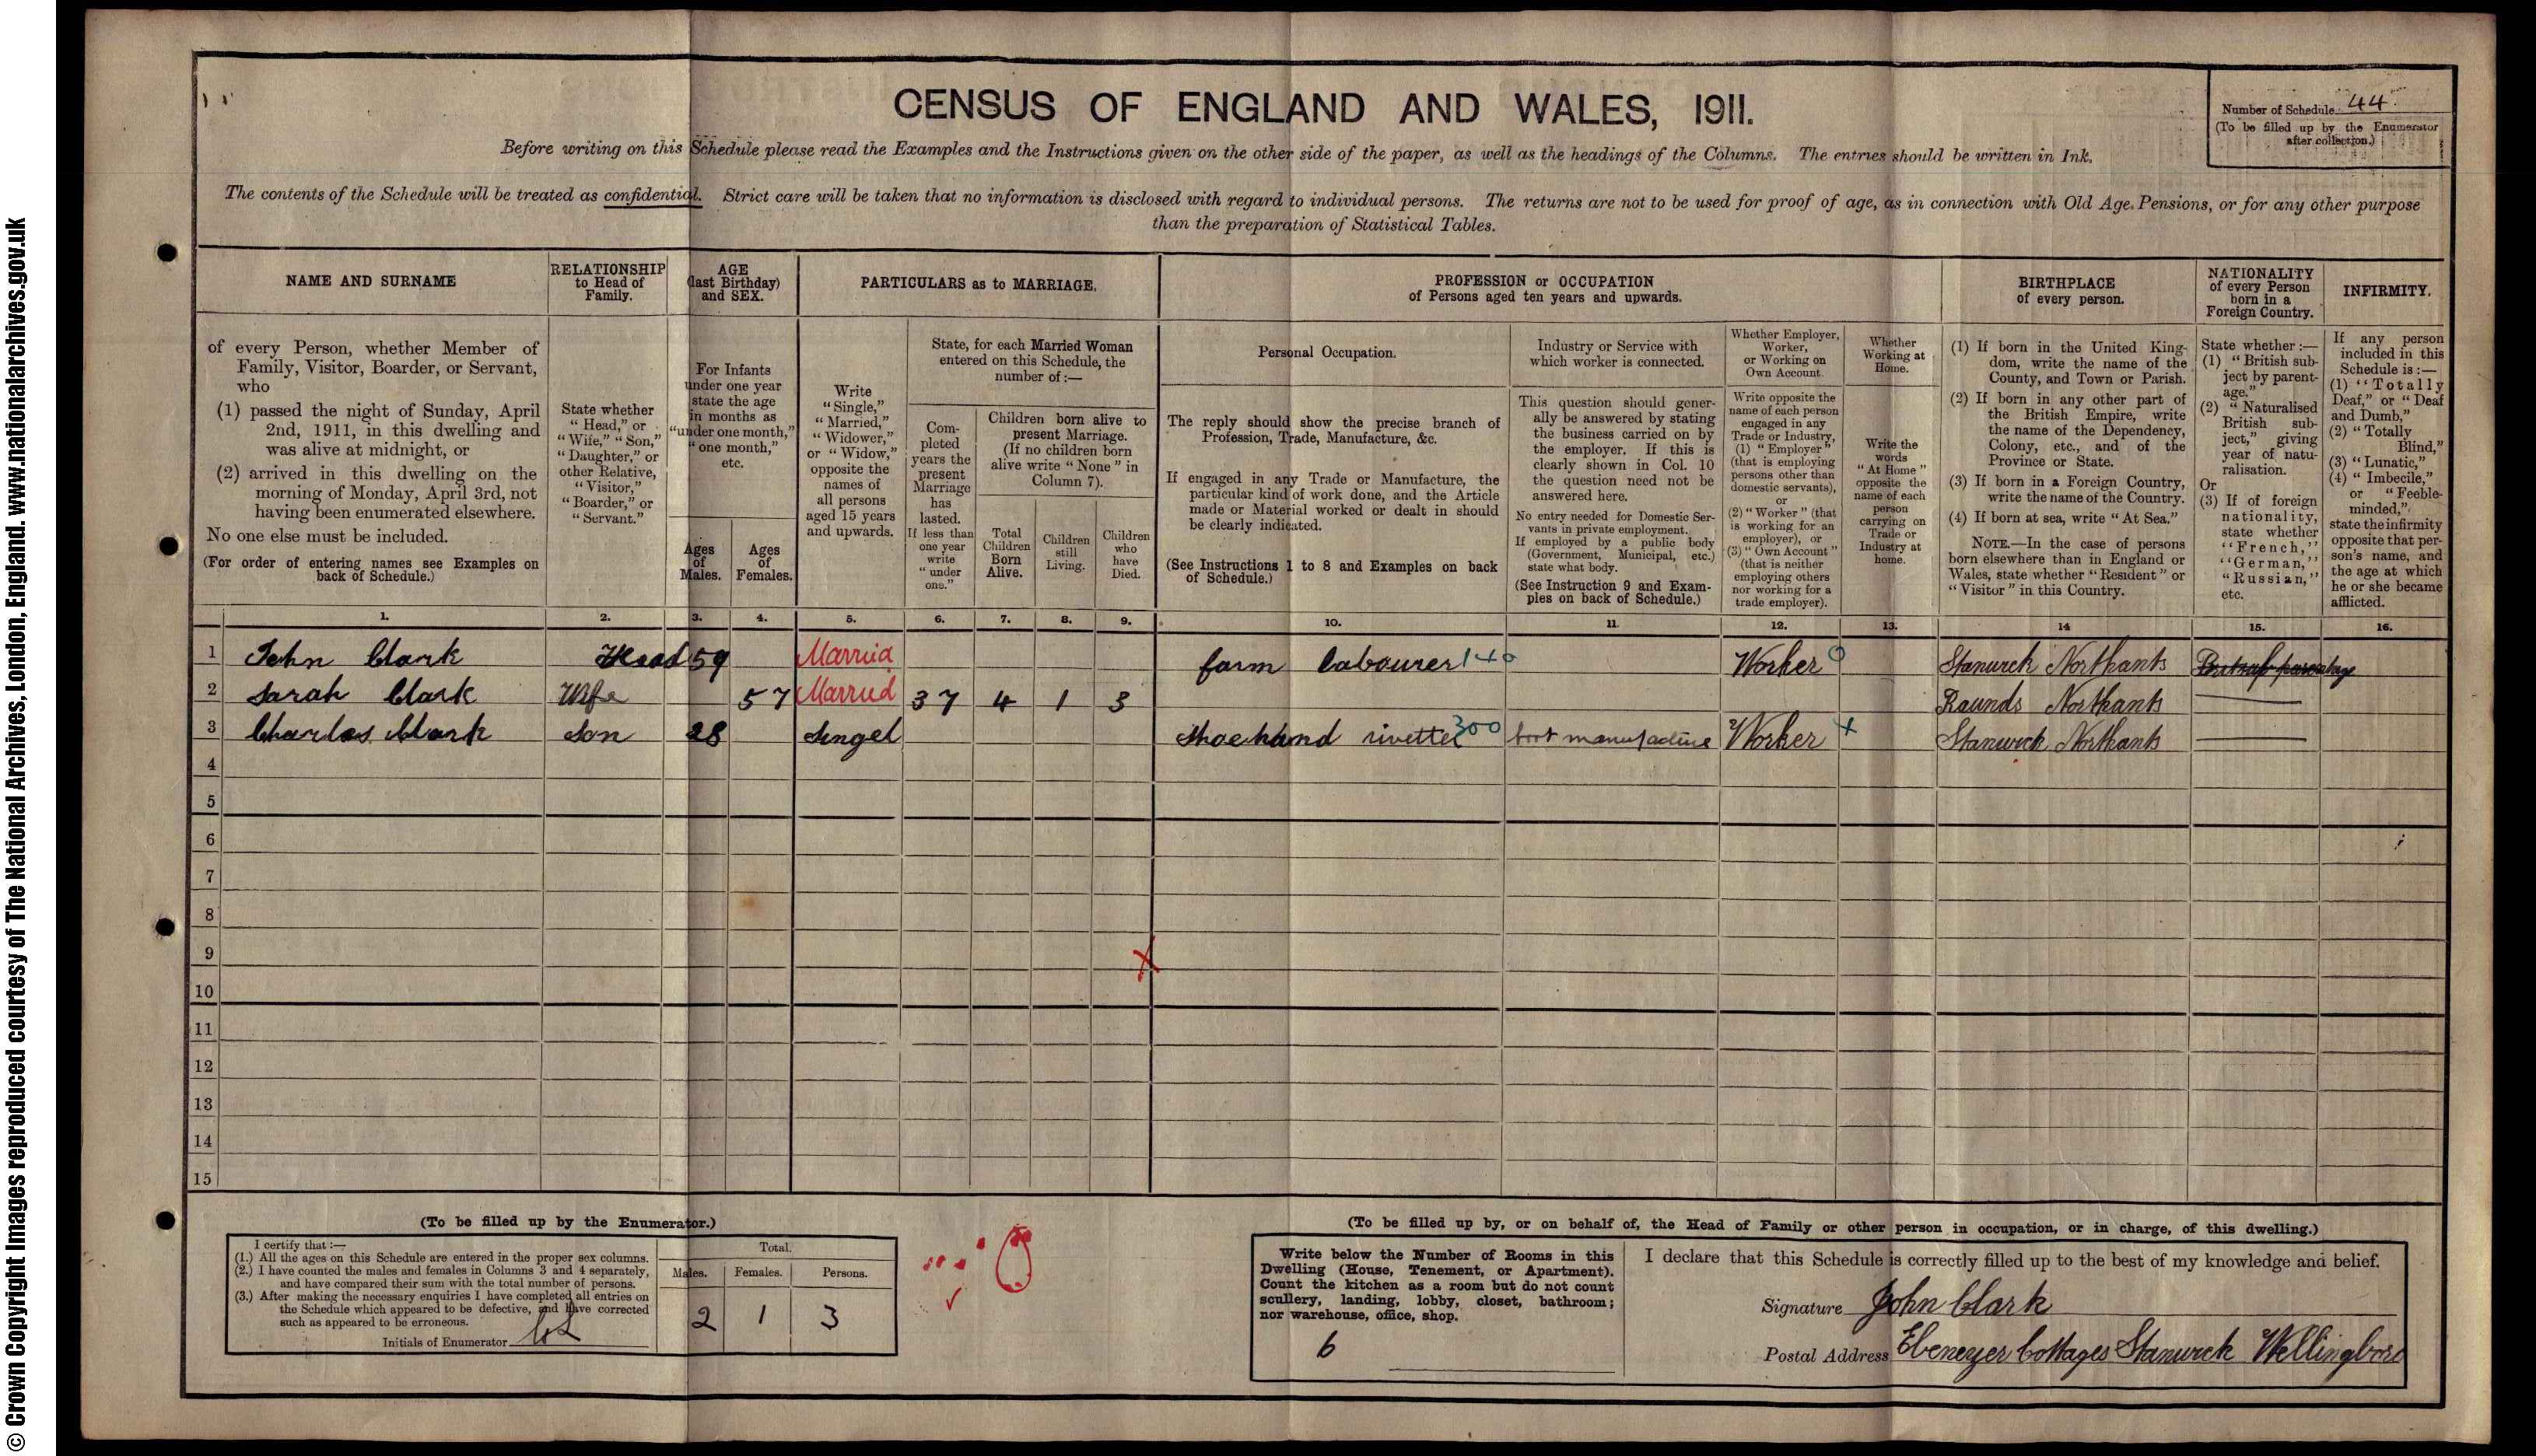 © Crown Copyright Images reproduced courtesy of The National Archives, London, England. www.nationalarchives.gov.uk
CENSUS OF ENGLAND AND WALES, 1911.
Number of Schedule 44.
(To be filled up by the Enumerator
after collection.)
Before writing on this Schedule please read the Examples and the Instructions given on the other side of the paper, as well as the headings of the Columns. The entries should be written in Ink.
The contents of the Schedule will be treated as confidential. Strict care will be taken that no information is disclosed with regard to individual persons. The returns are not to be used for proof of age, as in connection with Old Age Pensions, or for any other purpose
than the preparation of Statistical Tables.
NAME AND SURNAME
of every Person, whether Member of
Family, Visitor, Boarder, or Servant,
who
(1) passed the night of Sunday, April
2nd, 1911, in this dwelling and
was alive at midnight, or
(2) arrived in this dwelling on the
morning of Monday, April 3rd, not
having been enumerated elsewhere.
No one else must be included.
(For order of entering names see Examples on
back of Schedule.)
RELATIONSHIP
to Head of
Family.
State whether
"Head," or
"Wife," "Son,"
"Daughter," or
other Relative,
"Visitor,"
"Boarder," or
"Servant."
AGE
(last Birthday)
and SEX.
For Infants
under one year
state the age
in months as
"under one month,"
"one month,"
etc.
Ages
of
Males.
Ages
of
Females.
PARTICULARS as to MARRIAGE.
Write
"Single,"
"Married,"
"Widower,"
or "Widow,"
opposite the
names of
all persons
aged 15 years
and upwards.
State, for each Married Woman
entered on this Schedule, the
number of:—
Com-
pleted
years the
present
Marriage
has
lasted.
If less than
one year
write
"under
one."
Children born alive to
present Marriage.
(If no children born
alive write "None" in
Column 7).
Total
Children
Born
Alive.
Children
still
Living.
Children
who
have
Died.
PROFESSION or OCCUPATION
of Persons aged ten years and upwards.
Personal Occupation.
The reply should show the precise branch of
Profession, Trade, Manufacture, &c.
If engaged in any Trade or Manufacture, the
particular kind of work done, and the Article
made or Material worked or dealt in should
be clearly indicated.
(See Instructions 1 to 8 and Examples on back
of Schedule.)
Industry or Service with
which worker is connected.
This question should gener-
ally be answered by stating
the business carried on by
the employer. If this is
clearly shown in Col. 10
the question need not be
answered here.
No entry needed for Domestic Ser-
vants in private employment.
If employed by a public body
(Government, Municipal, etc.)
state what body.
(See Instruction 9 and Exam-
ples on back of Schedule.)
Whether Employer,
Worker,
or Working on
Own Account.
Write opposite the
name of each person
engaged in any
Trade or Industry,
(1) "Employer"
(that is employing
persons other than
domestic servants),
or
(2) "Worker" (that
is working for an
employer), or
(3) "Own Account"
(that is neither
employing others
nor working for a
trade employer).
Whether
Working at
Home.
Write the
words
"At Home"
opposite the
name of each
person
carrying on
Trade or
Industry at
home.
BIRTHPLACE
of every person.
(1) If born in the United King-
dom, write the name of the
County, and Town or Parish.
(2) If born in any other part of
the British Empire, write
the name of the Dependency,
Colony, etc., and of the
Province or State.
(3) If born in a Foreign Country,
write the name of the Country.
(4) If born at sea, write "At Sea."
NOTE.—In the case of persons
born elsewhere than in England or
Wales, state whether "Resident" or
"Visitor" in this Country.
NATIONALITY
of every Person
born in a
Foreign Country.
State whether:—
(1) "British sub-
ject by parent-
age."
(2) "Naturalised
British sub-
ject," giving
year of natu-
ralisation.
Or
(3) If of foreign
nationality,
state whether
"French,"
"German,"
"Russian,"
etc.
INFIRMITY.
If any person
included in this
Schedule is:—
(1) "Totally
Deaf," or "Deaf
and Dumb,"
(2) "Totally
Blind,"
(3) "Lunatic,"
(4) "Imbecile,"
or "Feeble-
minded,"
state the infirmity
opposite that per-
son's name, and
the age at which
he or she became
afflicted.
1. 2. 3. 4. 5. 6. 7. 8. 9. 10. 11. 12. 13. 14 15. 16.
1 John Clark Head 59 Married farm labourer 140 Worker 0 Stanwick Northants
2 Sarah Clark Wife 57 Married 37 4 1 3 Raunds Northants
3 Charles Clark Son 28 Singel Shoe hand rivetter 300 boot manufacture Worker x Stanwick Northants
4
5
6
7
8
9
10
11
12
13
14
15
(To be filled up by the Enumerator.)
I certify that:—
(1.) All the ages on this Schedule are entered in the proper sex columns.
(2.) I have counted the males and females in Columns 3 and 4 separately,
and have compared their sum with the total number of persons.
(3.) After making the necessary enquiries I have completed all entries on
the Schedule which appeared to be defective, and have corrected
such as appeared to be erroneous.
Initials of Enumerator
Total.
Males. Females. Persons.
2 1 3
(To be filled up by, or on behalf of, the Head of Family or other person in occupation, or in charge, of this dwelling.)
Write below the Number of Rooms in this
Dwelling (House, Tenement, or Apartment).
Count the kitchen as a room but do not count
scullery, landing, lobby, closet, bathroom;
nor warehouse, office, shop.
6
I declare that this Schedule is correctly filled up to the best of my knowledge and belief.
Signature John Clark
Postal Address Ebenezer Cottages Stanwick Wellingboro